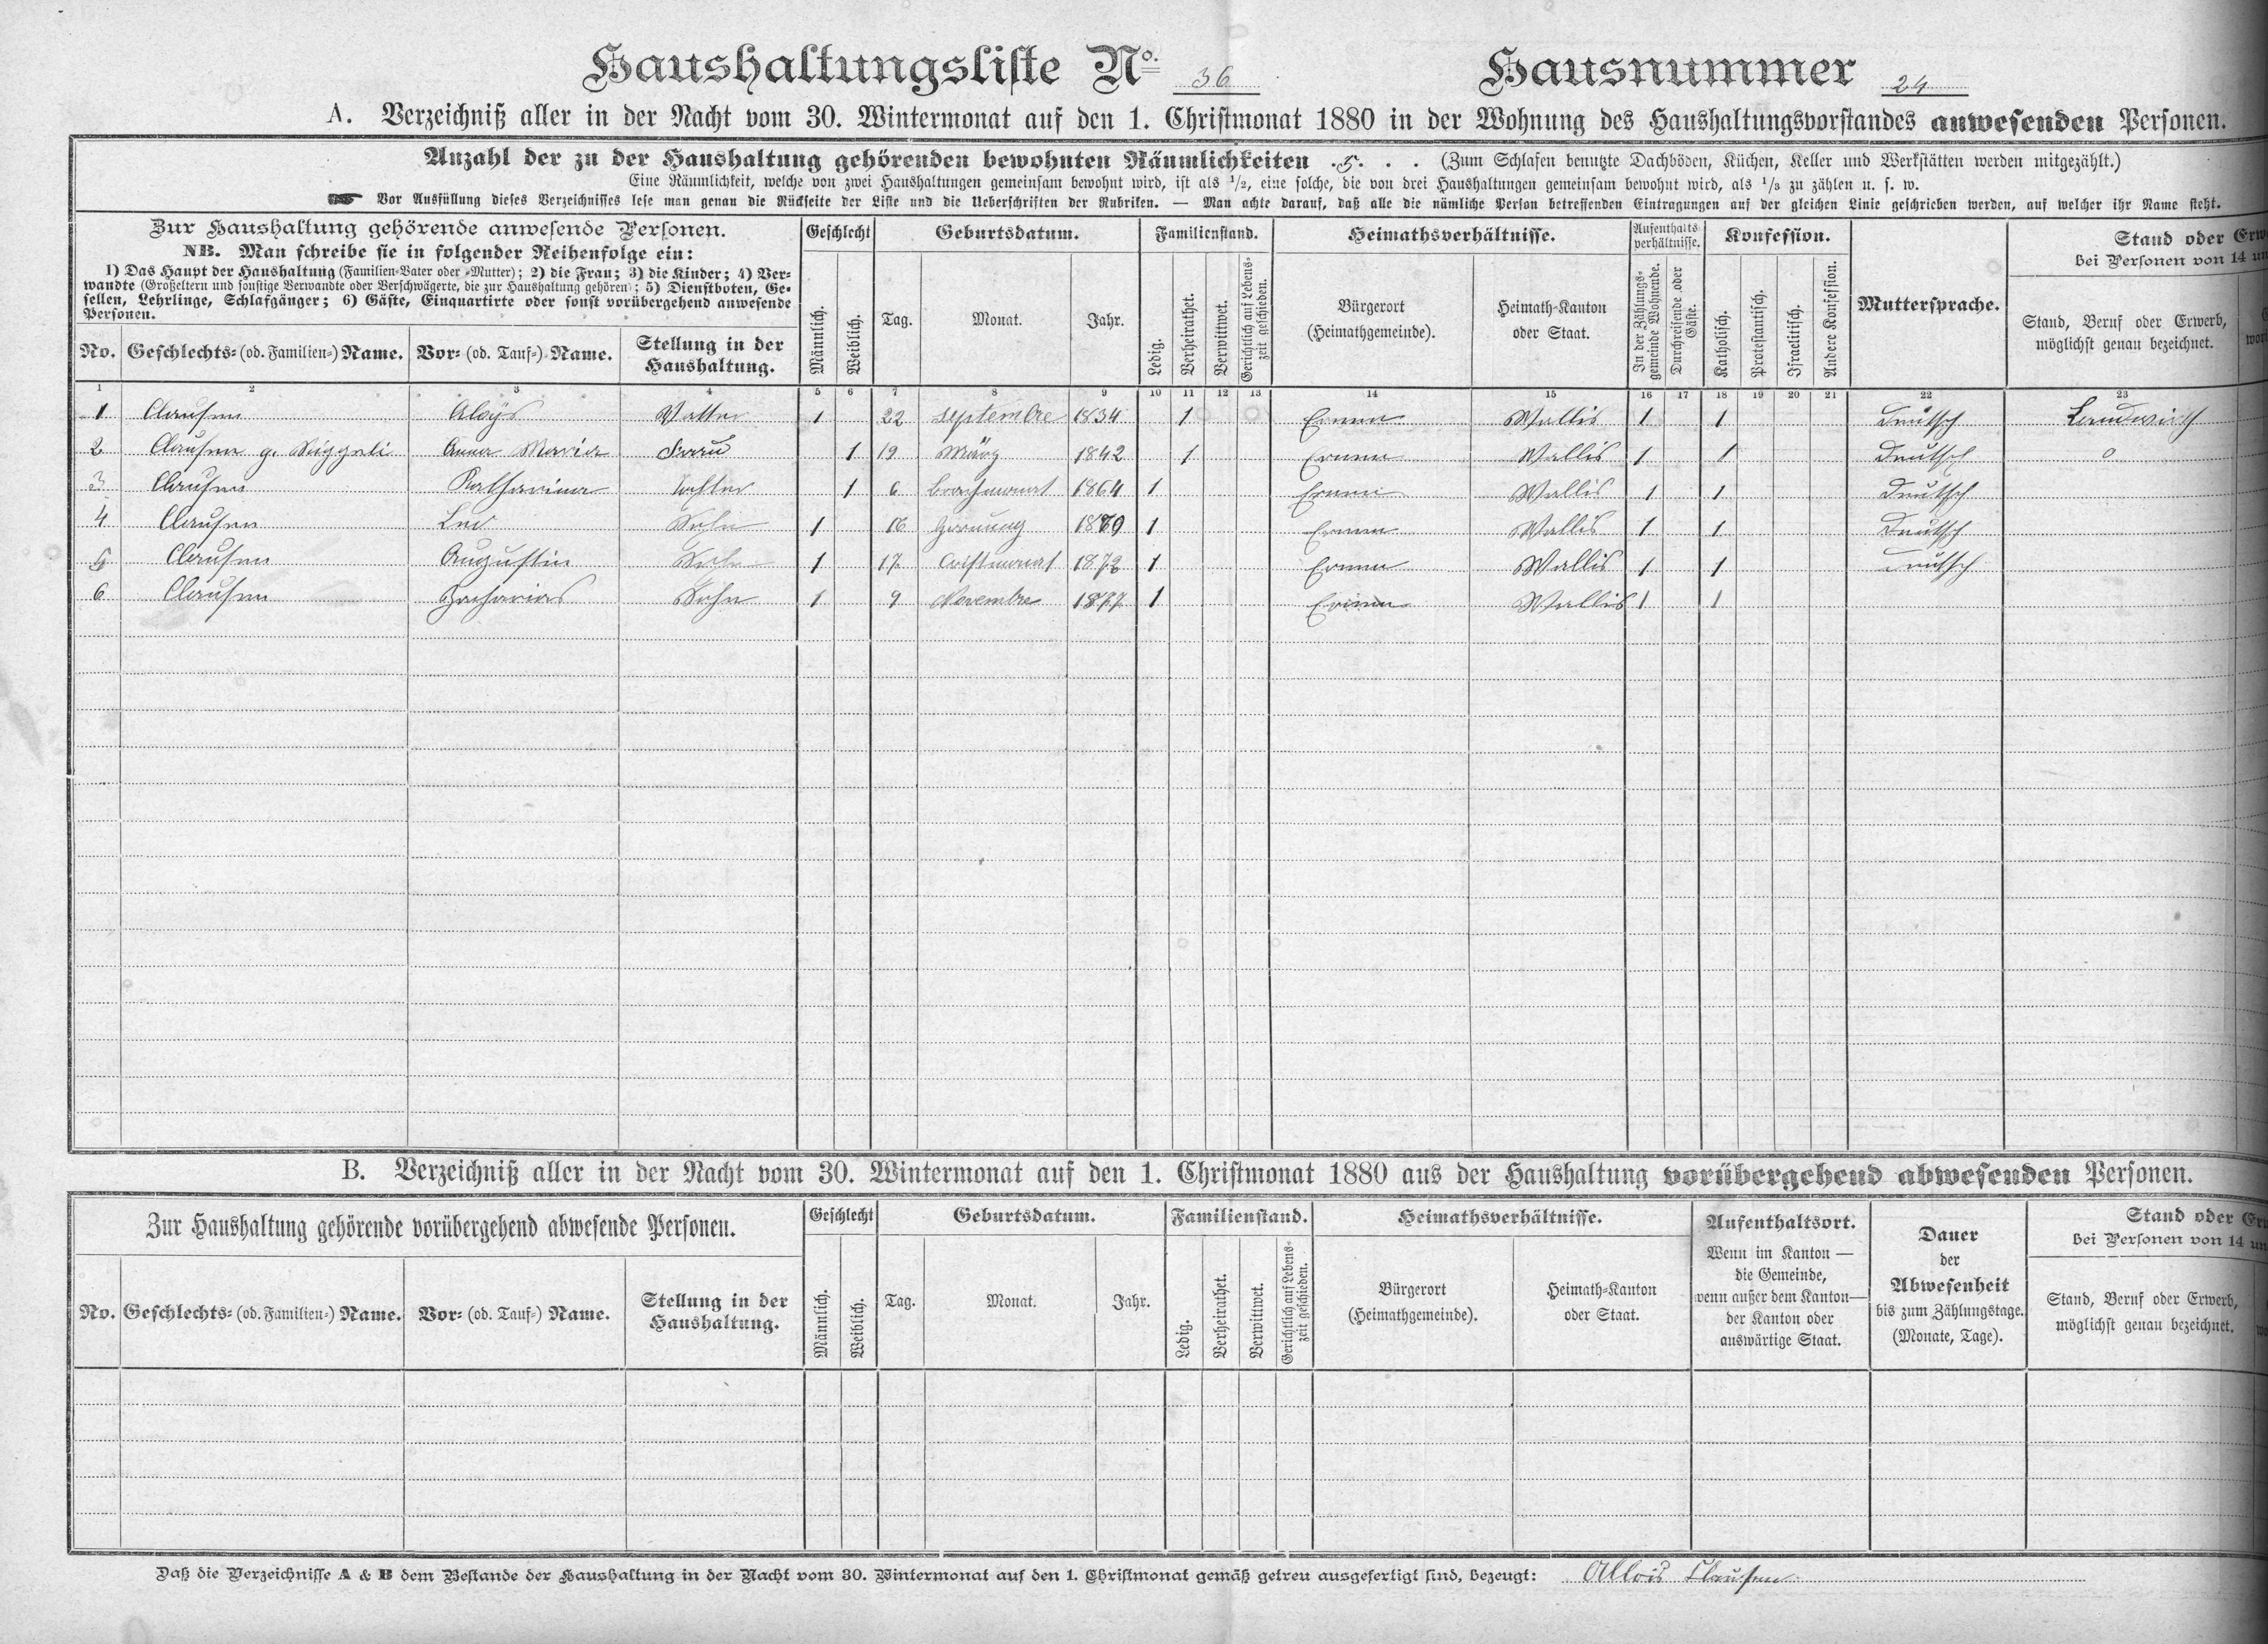 Haushaltungsliste No. 36 Hausnummer 24
A. Verzeichniß aller in der Nacht vom 30. Wintermonat auf den 1. Christmonat 1880 in der Wohnung des Haushaltungsvorstandes anwesenden Personen.
Anzahl der zu der Haushaltung gehörenden bewohnten Räumlichkeiten .5. . . (Zum Schlafen benutzte Dachböden, Küchen, Keller und Werkstätten werden mitgezählt.)
Eine Räumlichkeit, welche von zwei Haushaltungen gemeinsam bewohnt wird, ist als 1/2, eine solche, die von drei Haushaltungen gemeinsam bewohnt wird, als 1/3 zu zählen u. s. w.
Vor Ausfüllung dieses Verzeichnisses lese man genau die Rückseite der Liste und die Ueberschriften der Rubriken. — Man achte darauf, daß alle die nämliche Person betreffenden Eintragungen auf der gleichen Linie geschrieben werden, auf welcher ihr Name steht.
Zur Haushaltung gehörende anwesende Personen.
NB. Man schreibe sie in folgender Reihenfolge ein:
1) Das Haupt der Haushaltung (Familien-Vater oder -Mutter); 2) die Frau; 3) die Kinder; 4) Ver-
wandte (Großeltern und sonstige Verwandte oder Verschwägerte, die zur Haushaltung gehören); 5) Dienstboten, Ge-
sellen, Lehrlinge, Schlafgänger; 6) Gäste, Einquartirte oder sonst vorübergehend anwesende
Personen.
No. Geschlechts- (od. Familien-) Name. Vor- (od. Tauf-) Name. Stellung in der
Haushaltung.
Geschlecht
Männlich. Weiblich.
Geburtsdatum.
Tag. Monat. Jahr.
Familienstand.
Ledig. Verheirathet. Verwittwet. Gerichtlich auf Lebens-
zeit geschieden.
Heimathsverhältnisse.
Bürgerort
(Heimathgemeinde).
Heimath-Kanton
oder Staat.
Aufenthalts-
verhältnisse.
In der Zählungs-
gemeinde Wohnende.
Durchreisende oder
Gäste.
Konfession.
Katholisch. Protestantisch. Israelitisch. Andere Konfession.
Muttersprache.
Stand oder Erw
bei Personen von 14 un
Stand, Beruf oder Erwerb,
möglichst genau bezeichnet.
1 2 3 4 5 6 7 8 9 10 11 12 13 14 15 16 17 18 19 20 21 22 23
1 Clausen Aloÿs Vatter 1 22 septembre 1834 1 Ernen Wallis 1 1 Deutsch Landwirth
2 Clausen g. Anna Maria Frau 1 19 März 1842 1 Ernen Wallis 1 1 Deutsch o
3 Clausen Katharina Tochter 1 6 Brachmonat 1864 1 Ernen Wallis 1 1 Deutsch
4 Clausen Leo Sohn 1 16 Hornung 1 Ernen Wallis 1 1 Deutsch
5 Clausen Augustin Sohn 1 17 Cristmonat 1872 1 Ernen Wallis 1 1 Deutsch
6 Clausen Zacharias Sohn 1 9 Novembre 1877 1 Ernen Wallis 1 1
B. Verzeichniß aller in der Nacht vom 30. Wintermonat auf den 1. Christmonat 1880 aus der Haushaltung vorübergehend abwesenden Personen.
Zur Haushaltung gehörende vorübergehend abwesende Personen.
No. Geschlechts- (od. Familien-) Name. Vor- (od. Tauf-) Name. Stellung in der
Haushaltung.
Geschlecht
Männlich. Weiblich.
Geburtsdatum.
Tag. Monat. Jahr.
Familienstand.
Ledig. Verheirathet. Verwittwet. Gerichtlich auf Lebens-
zeit geschieden.
Heimathsverhältnisse.
Bürgerort
(Heimathgemeinde).
Heimath-Kanton
oder Staat.
Aufenthaltsort.
Wenn im Kanton —
die Gemeinde,
wenn außer dem Kanton—
der Kanton oder
auswärtige Staat.
Dauer
der
Abwesenheit
bis zum Zählungstage.
(Monate, Tage).
Stand oder Er
bei Personen von 14 un
Stand, Beruf oder Erwerb,
möglichst genau bezeichnet.
Daß die Verzeichnisse A & B dem Bestande der Haushaltung in der Nacht vom 30. Wintermonat auf den 1. Christmonat gemäß getreu ausgefertigt sind, bezeugt: Allois Clausen